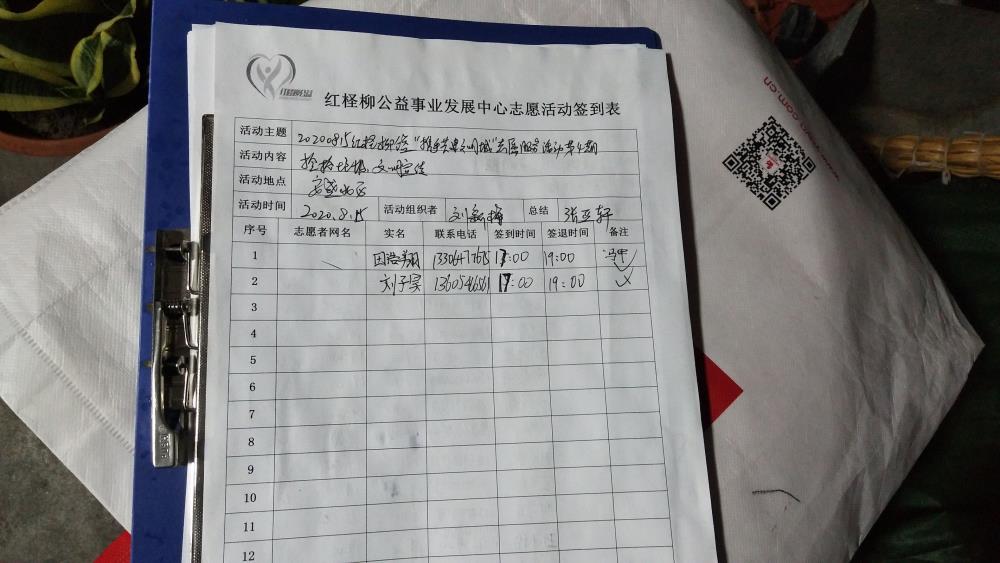 红柽柳公益事业发展中心志愿活动签到表
活动主题 20200815红柽柳 "携手共建文明城"志愿服务活动第4期
活动内容 捡拾垃圾 文明宣传
活动地点
活动时间 2020.8.15 活动组织者 刘新梅 总结 张亚轩
序号 志愿者网名 实名 联系电话 签到时间 签退时间 备注
1 田浩翔 17:00 19:00
2 刘子昊 13605466861 17:00 19:00
3
4
5
6
7
8
9
10
11
12